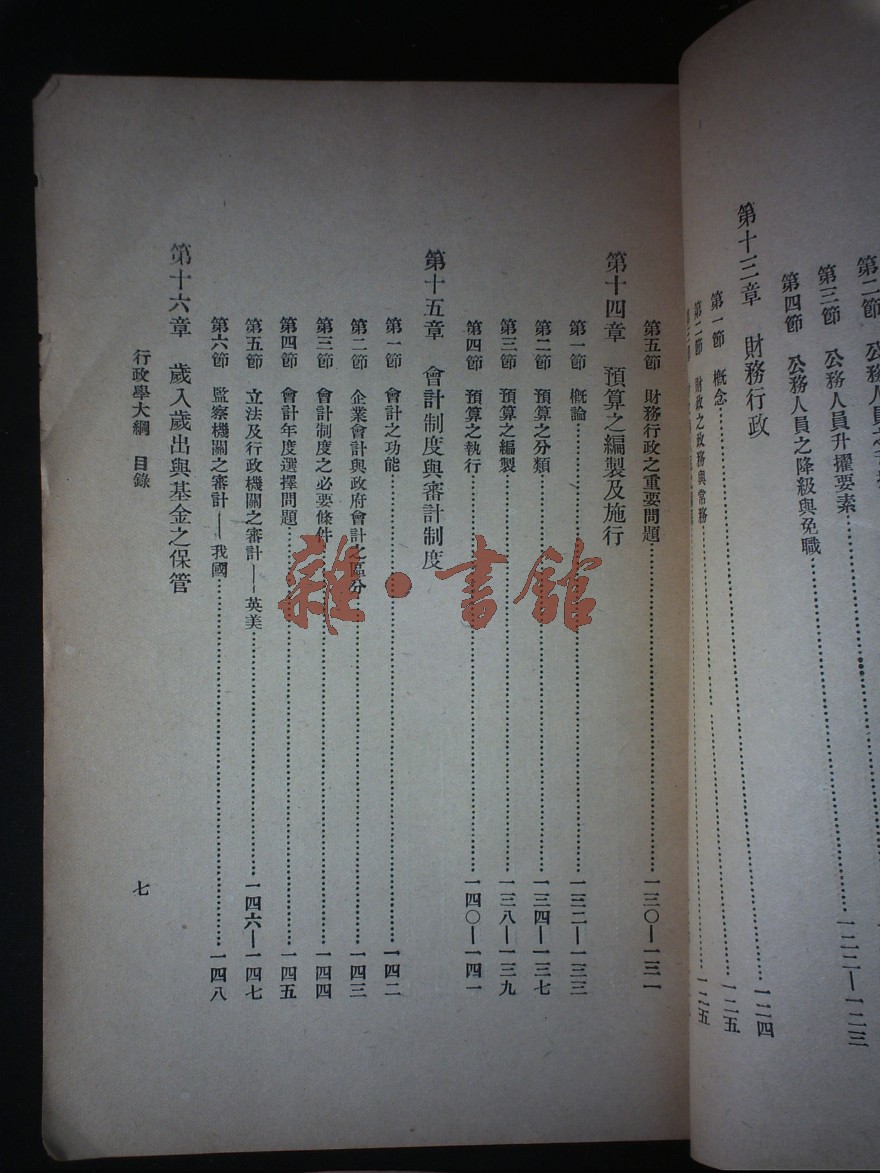 第三節 公務人員升擢要素……一二二—一二三
第四節 公務人員之降級與免職
第十三章 財務行政……一二四
第一節 概念……一二五
第二節 財政之政務與常務……一二五
第五節 財務行政之重要問題……一三〇—一三一
第十四章 預算之編製及施行
第一節 概論……一三二—一三三
第二節 預算之分類……一三四—一三七
第三節 預算之編製……一三八—一三九
第四節 預算之執行……一四〇—一四一
第十五章 會計制度與審計制度
第一節 會計之功能……一四二
第二節 企業會計與政府會計之區分……一四三
第三節 會計制度之必要條件……一四四
第四節 會計年度選擇問題……一四五
第五節 立法及行政機關之審計——英美……一四六—一四七
第六節 監察機關之審計——我國……一四八
第十六章 歲入歲出與基金之保管
行政學大綱 目錄
七
雜·書館